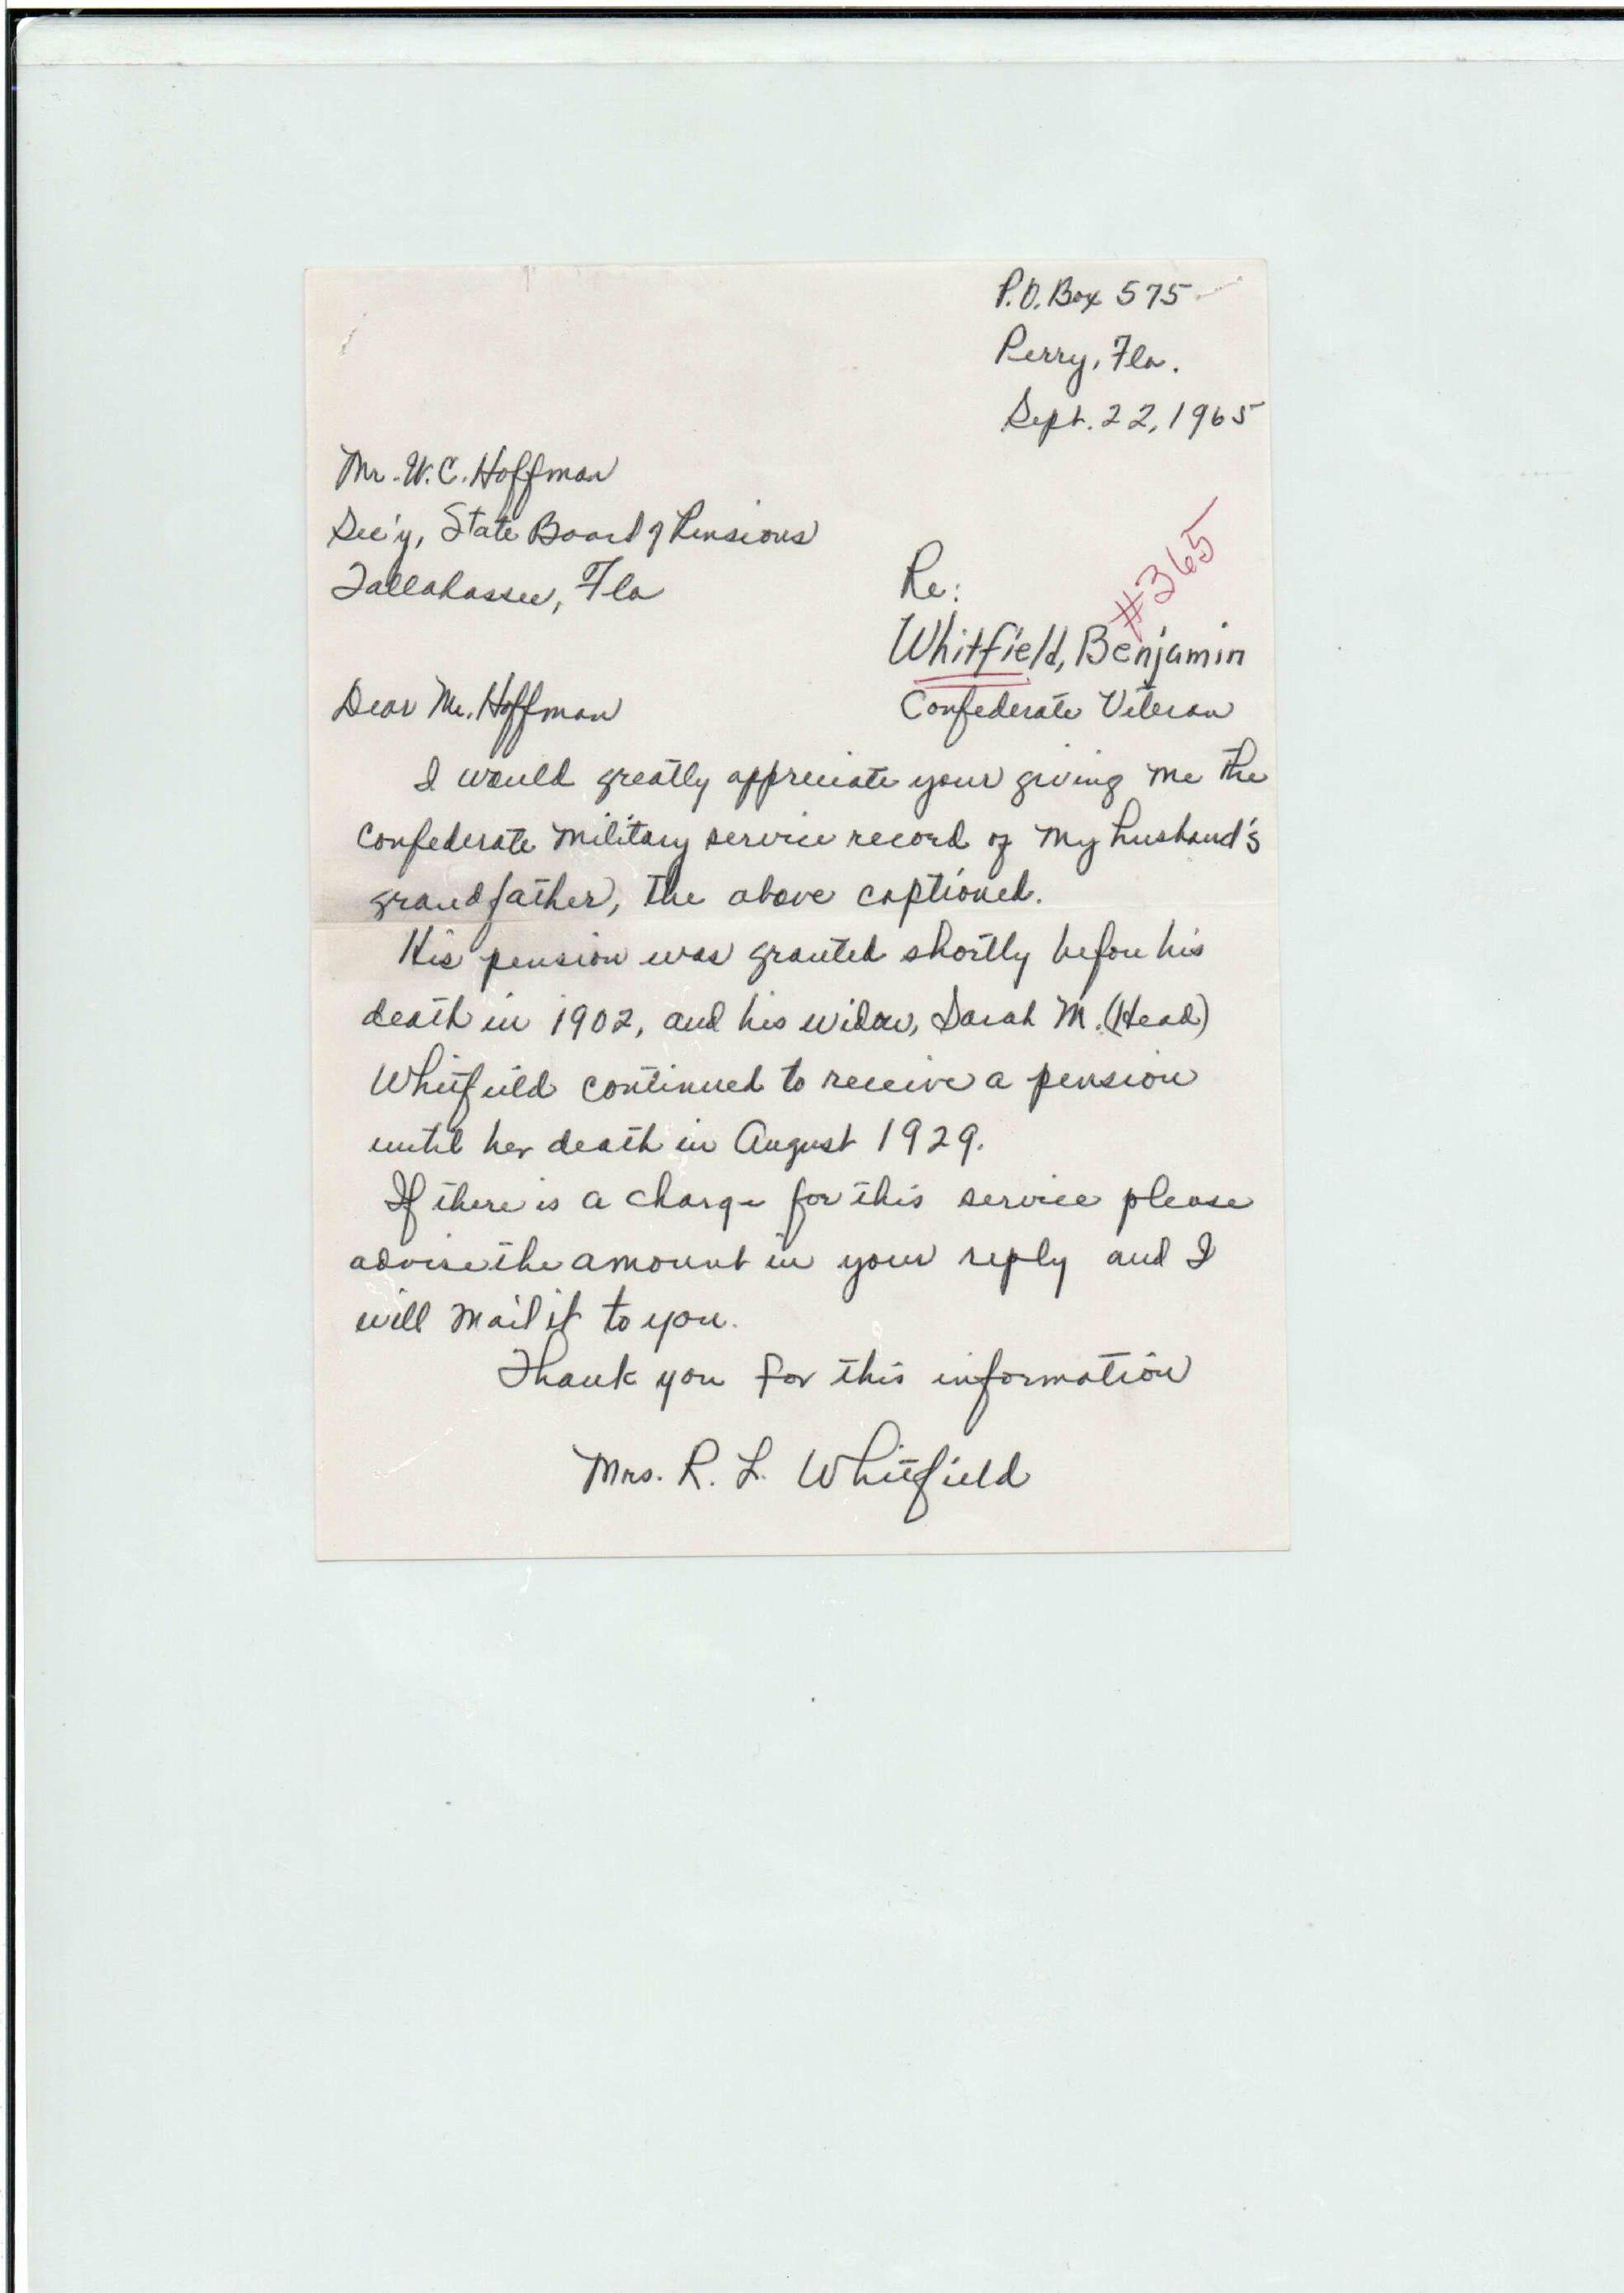 P.O. Box 575
Perry, Fla.
Sept. 22, 1965
Mr. W. C. Hoffman
Sec'y, State Board of Pensions
Tallahassee, Fla
Re:
#365
Whitfield, Benjamin
Confederate Veteran
Dear Mr. Hoffman
I would greatly appreciate your giving me the
Confederate military service record of my husband's
grandfather, the above captioned.
His pension was granted shortly before his
death in 1902, and his widow, Sarah M. (Head)
Whitfield continued to receive a pension
until her death in August 1929.
If there is a charge for this service please
advise the amount in your reply and I
will mail it to you.
Thank you for this information
Mrs. R. L. Whitfield